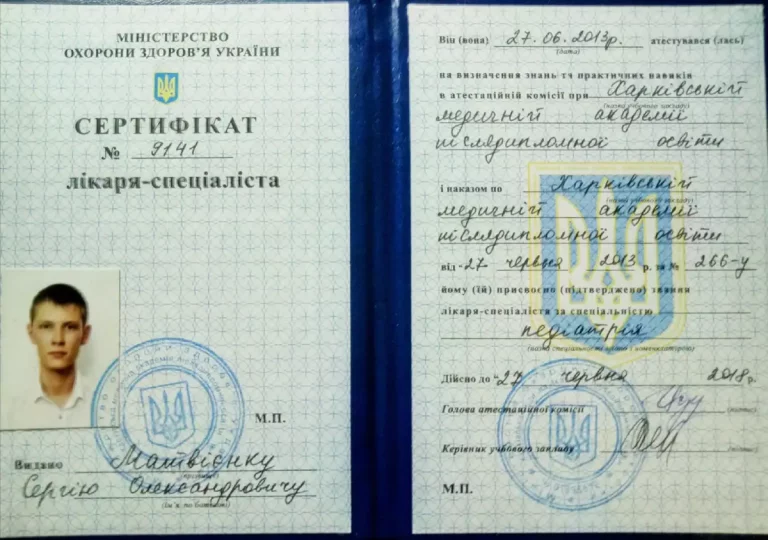 МІНІСТЕРСТВО
ОХОРОНИ ЗДОРОВ'Я УКРАЇНИ
СЕРТИФІКАТ
№ 9141
лікаря-спеціаліста
М.П.
Видано Матвієнку
(прізвище)
Сергію Олександровичу
(ім'я, по батькові)
Він (вона) 27.06.2013р. атестувався (лась)
(дата)
на визначення знань та практичних навиків
в атестаційній комісії при Харківській
(назва учбового закладу)
медичній академії
післядипломної освіти
і наказом по Харківській
(назва учбового закладу)
медичній академії
післядипломної освіти
від 27 червня 2013 р. за № 266-у
йому (їй) присвоєно (підтверджено) звання
лікаря-спеціаліста за спеціальністю
педіатрія
(назва спеціальності згідно з номенклатурою)
Дійсно до 27 червня 2018р.
Голова атестаційної комісії
(підпис)
Керівник учбового закладу
(підпис)
М.П.